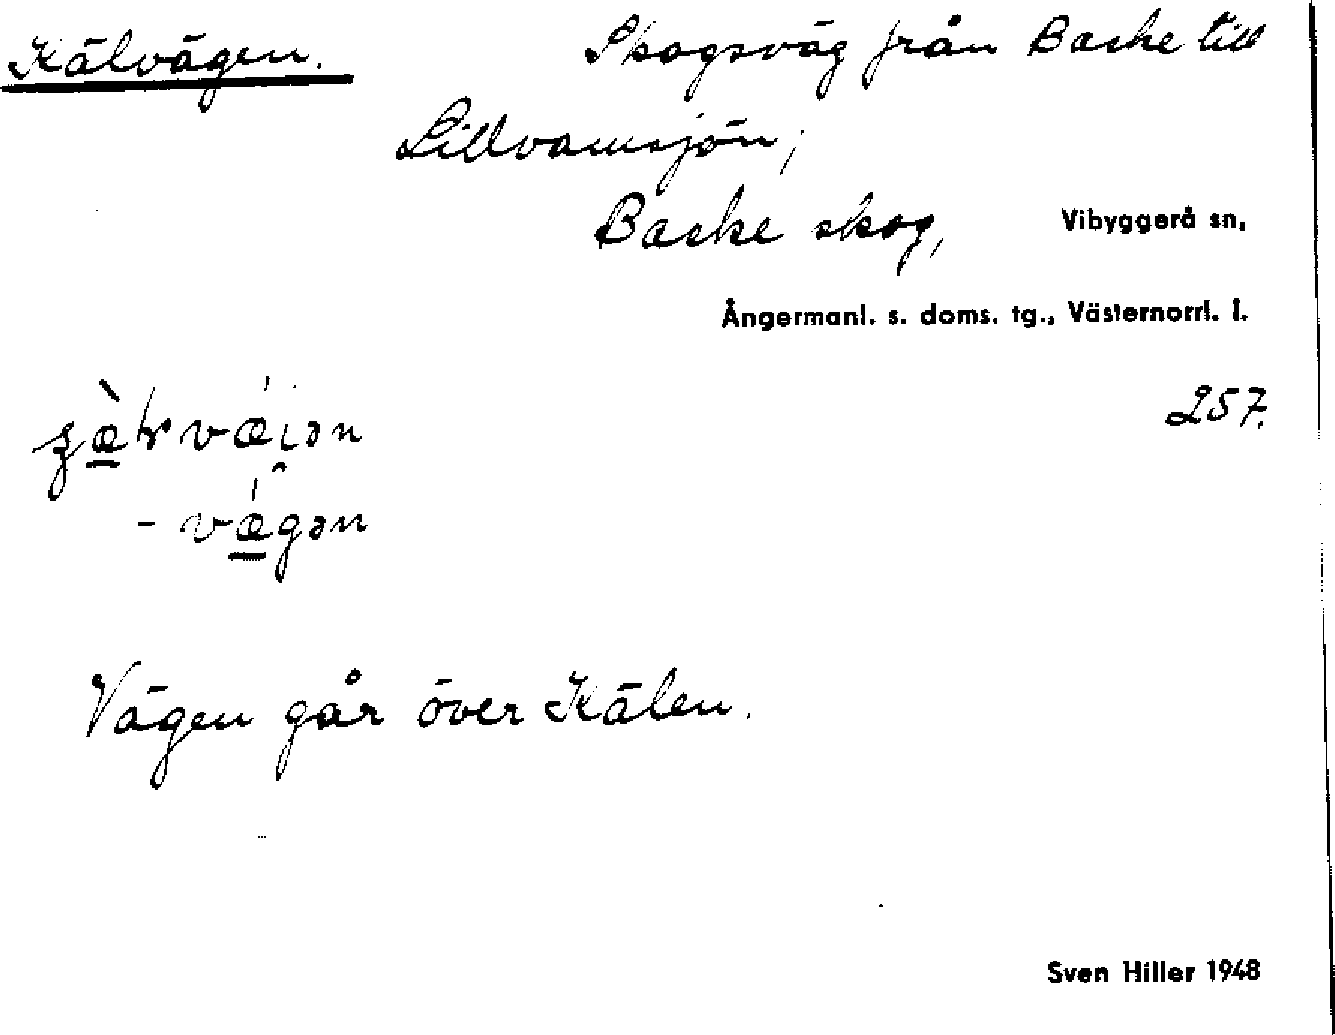 Kälvägen. Skogsväg från Baske till
Lillvamsjön;
Baske skog, Vibyggerå sn,
Ångermanl. s. doms. tg., Västernorrl. l.
257.
- vǽgən
Vägen går över Kälen.
Sven Hiller 1948